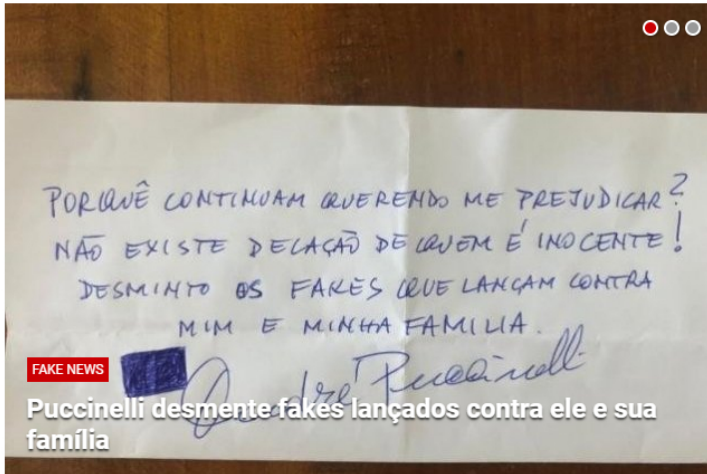 PORQUÊ CONTINUAM QUERENDO ME PREJUDICAR?
NÃO EXISTE DELAÇÃO DE QUEM É INOCENTE!
DESMINTO OS FAKES QUE LANÇAM CONTRA
MIM E MINHA FAMILIA.
André Puccinelli
FAKE NEWS
Puccinelli desmente fakes lançados contra ele e sua
família